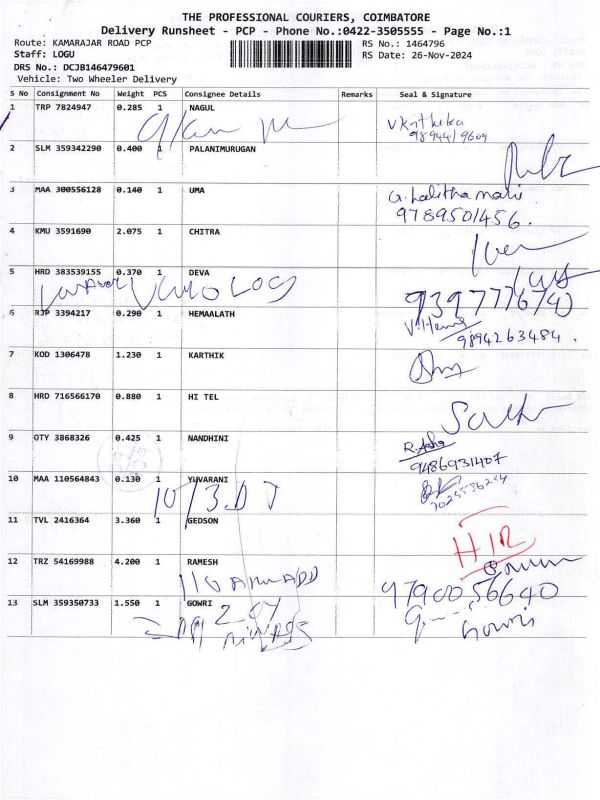 THE PROFESSIONAL COURIERS, COIMBATORE
Delivery Runsheet - PCP - Phone No.:0422-3505555 - Page No.:1
Route: KAMARAJAR ROAD PCP RS No.: 1464796
Staff: LOGU RS Date: 26-Nov-2024
DRS No.: DCJB146479601
Vehicle: Two Wheeler Delivery
S No Consignment No Weight PCS Consignee Details Remarks Seal & Signature
1 TRP 7824947 0.285 1 NAGUL
2 SLM 359342290 0.400 1 PALANIMURUGAN
3 MAA 300556128 0.140 1 UMA G. Lalithamani
9789501456.
4 KMU 3591690 2.075 1 CHITRA
5 HRD 383539155 0.370 1 DEVA
9397776740
6 RJP 3394217 0.290 1 HEMAALATH
9894263484.
7 KOD 1306478 1.230 1 KARTHIK
8 HRD 716566170 0.880 1 HI TEL
9 OTY 3868326 0.425 1 NANDHINI R. Asha
9486931407
10 MAA 110564843 0.130 1 YUVARANI
11 TVL 2416364 3.360 1 GEDSON
12 TRZ 54169988 4.200 1 RAMESH
9790056640
13 SLM 359350733 1.550 1 GOWRI
Gowri